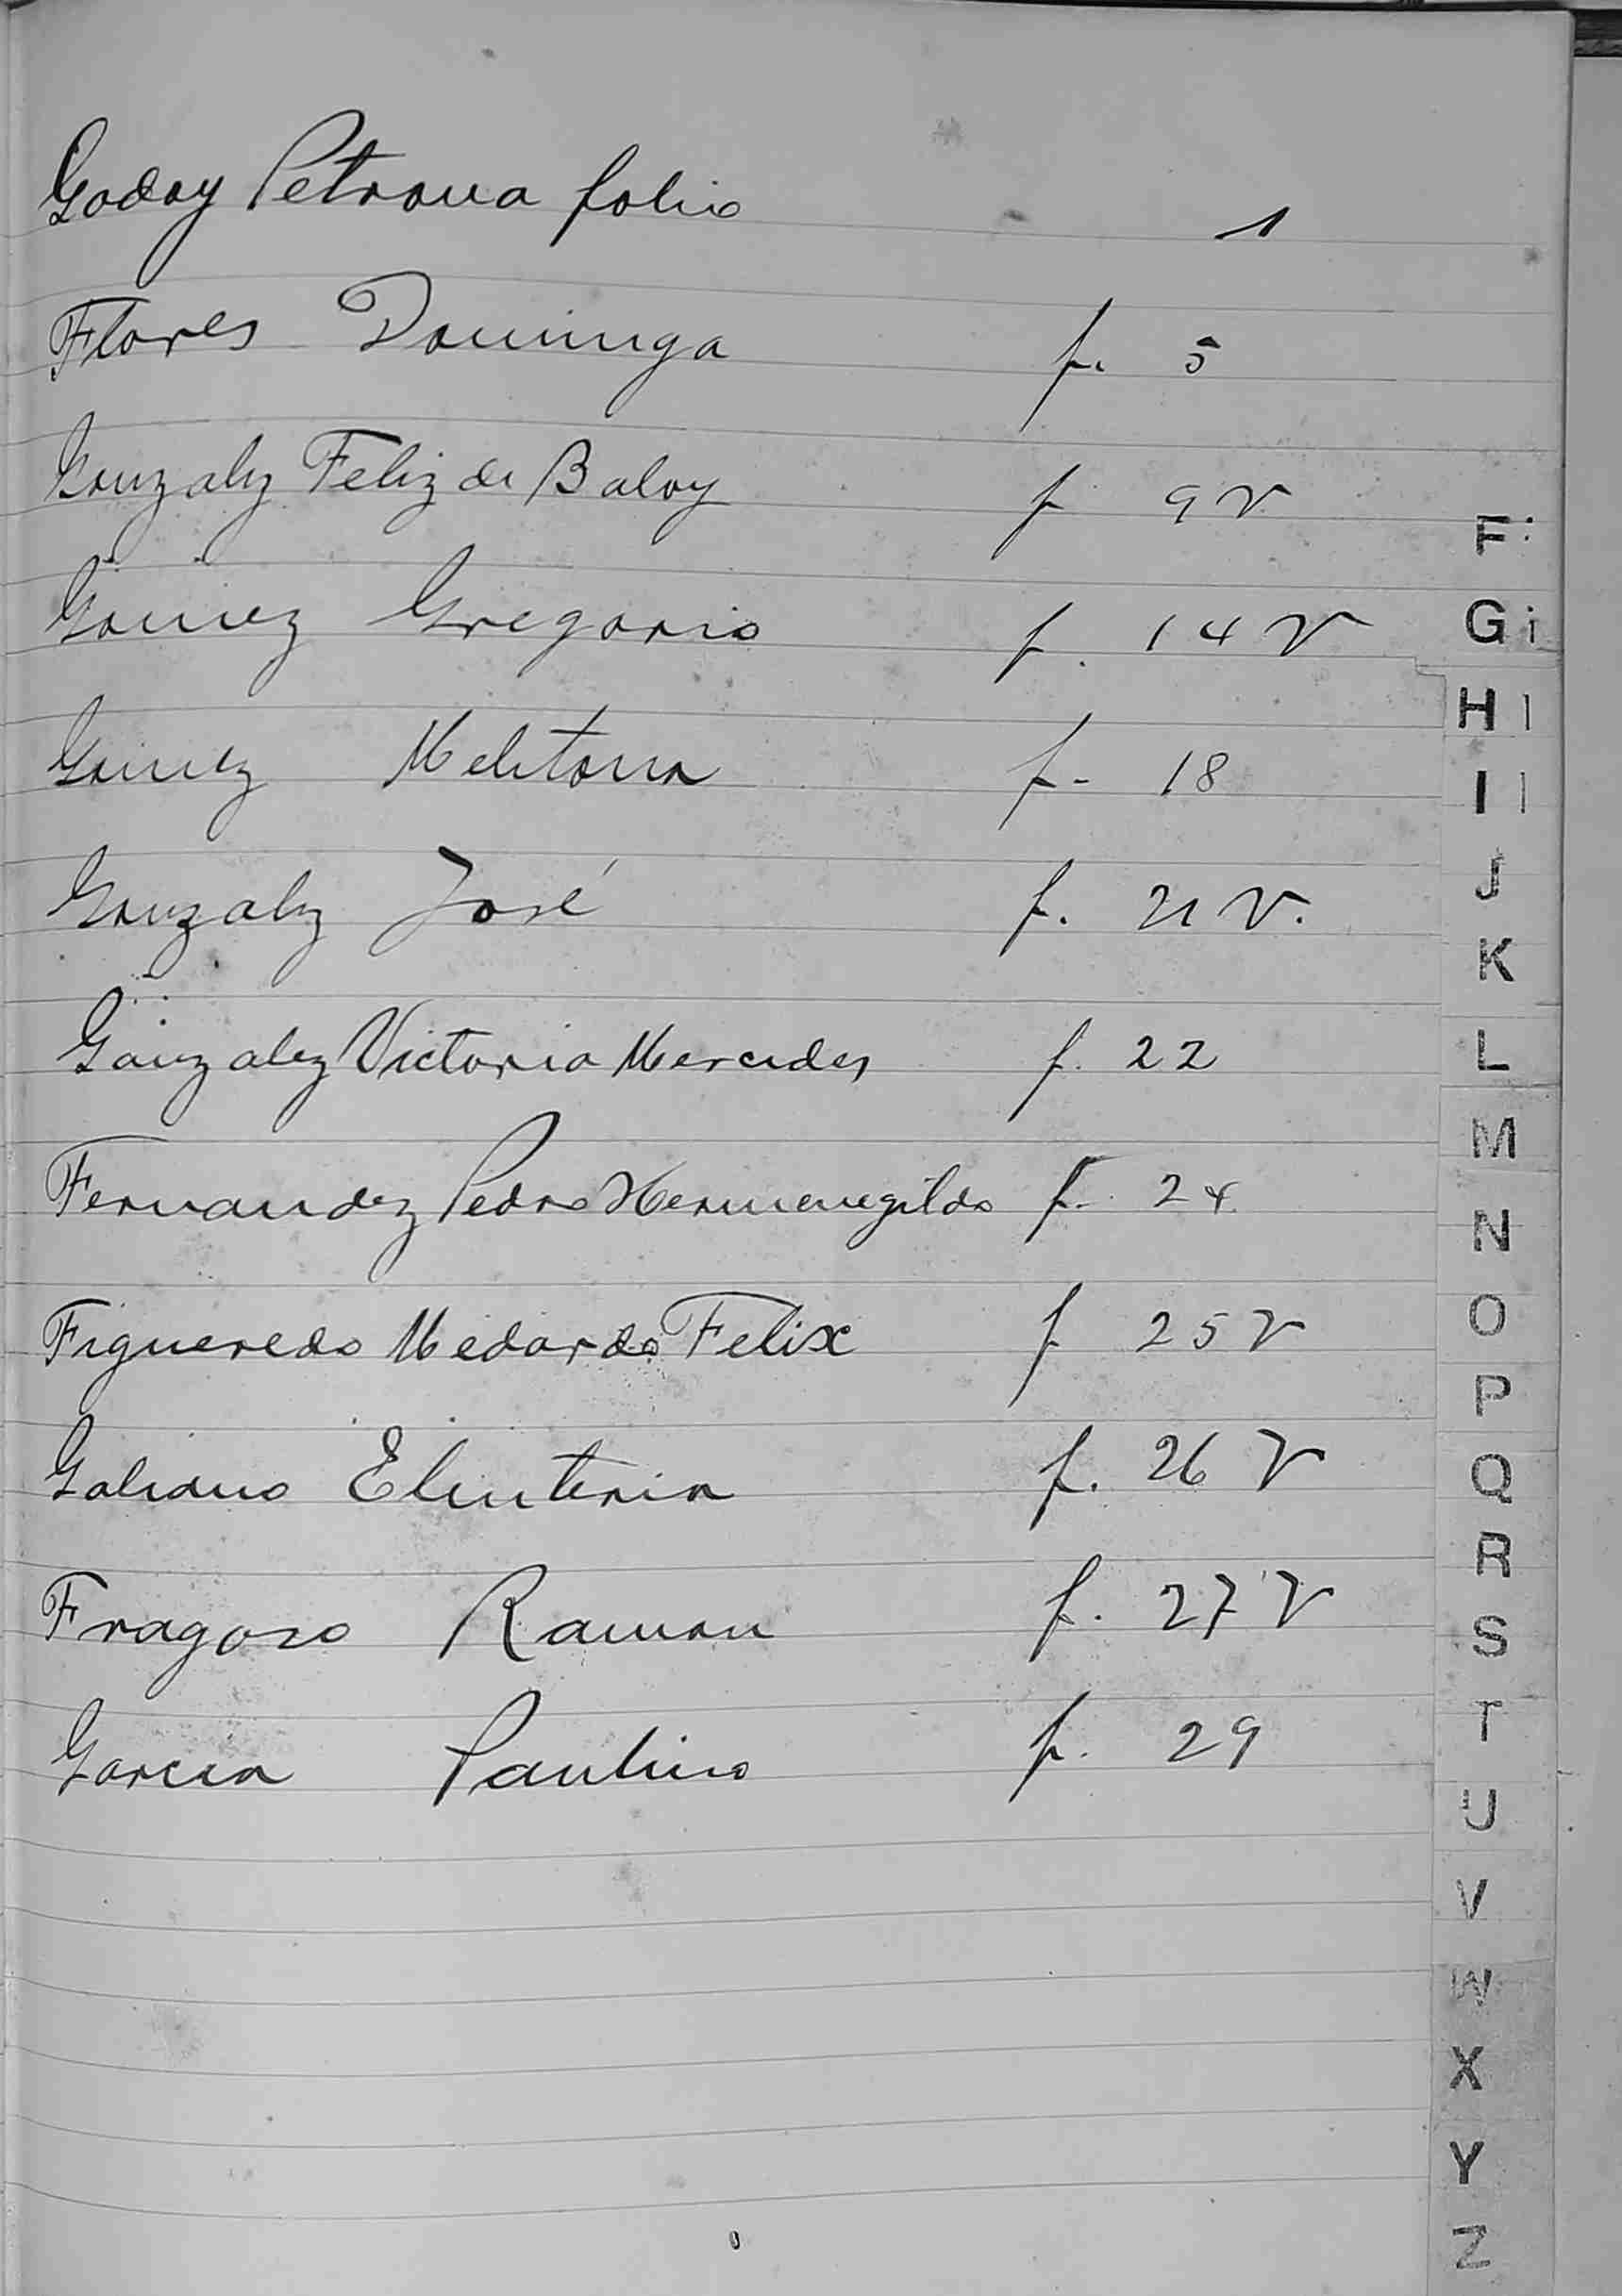 Godoy Petrona folio 1
Flores Dominga f. 5
Gonzalez Feliz de Baloy f 9 V
Gomez Gregorio f. 14 V
Gomez Melitona f- 18
Gonzalez José f. 21 V.
Gonzalez Victoria Mercedes f. 22
Fernandez Pedro Hermenegildo f. 24
Figueredo Medardo Felix f 25 V
Galiano Eleuteria f. 26 V
Fragoso Ramon f. 27 V
Garcia Paulino f. 29
F
G
H
I
J
K
L
M
N
O
P
Q
R
S
T
U
V
W
X
Y
Z